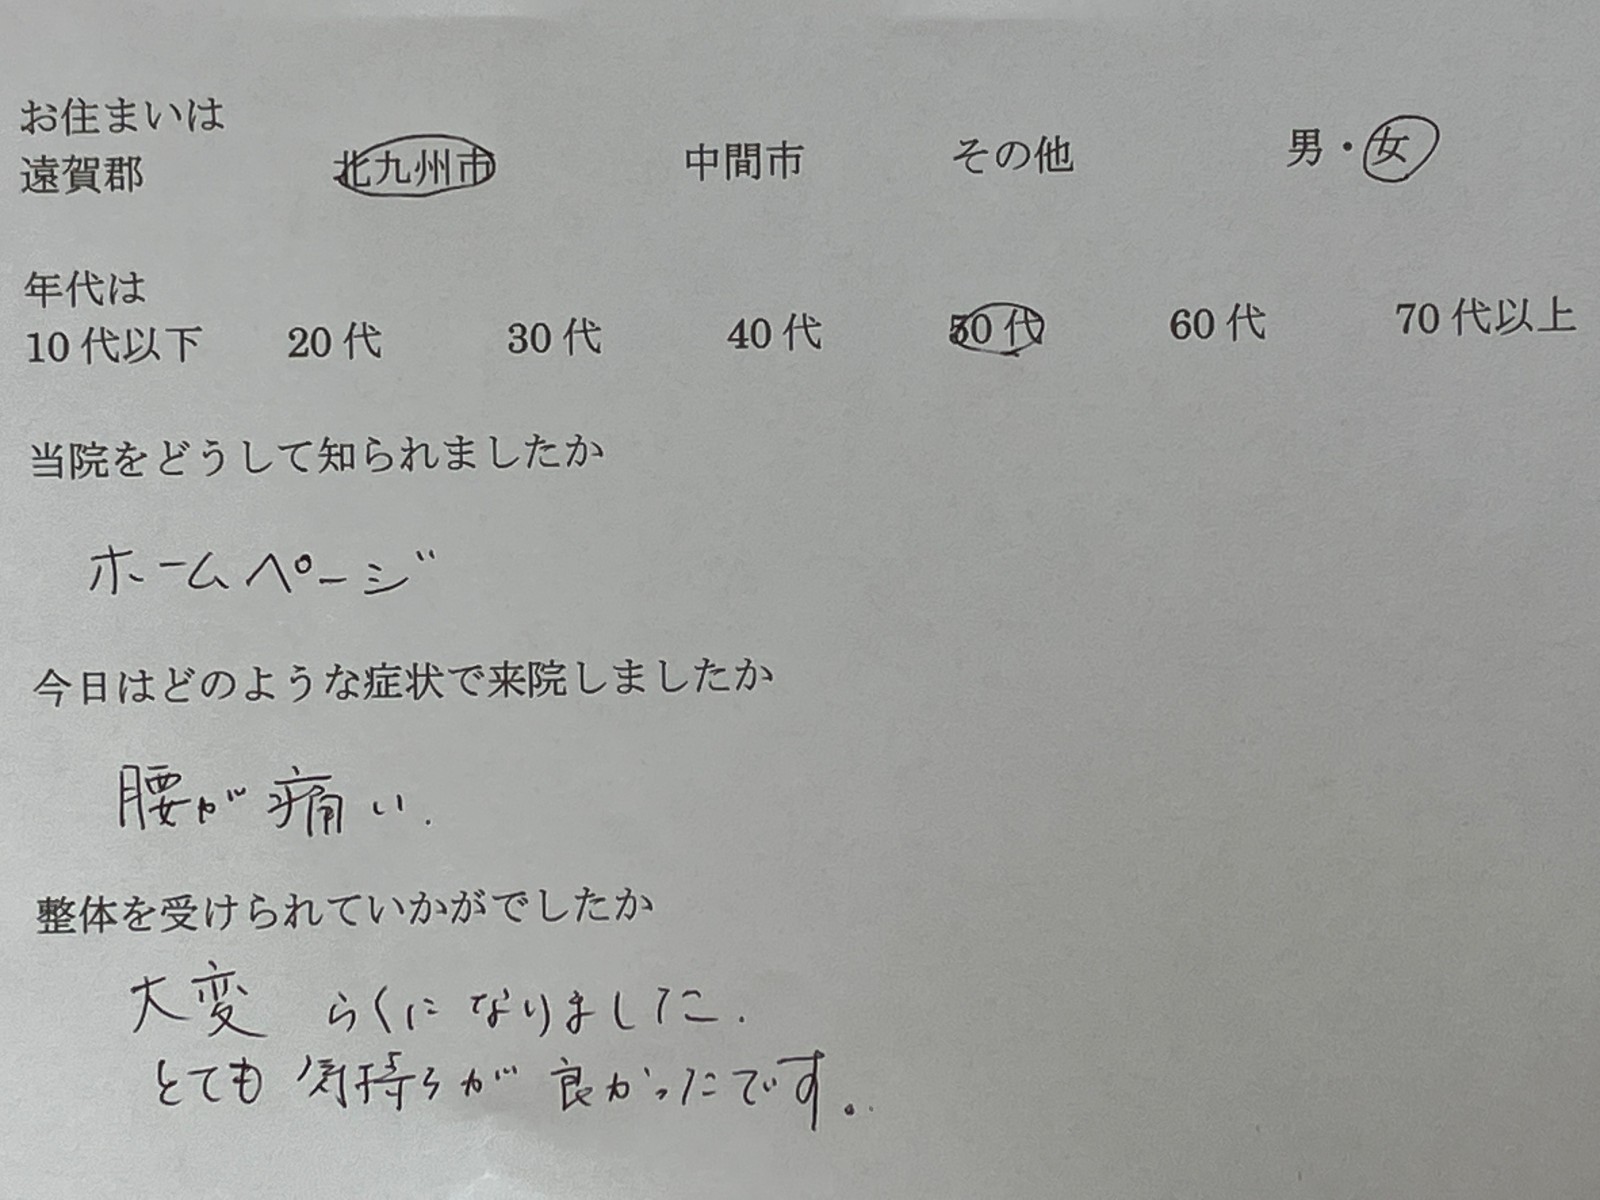 お住まいは
遠賀郡 北九州市 中間市 その他 男・女
年代は
10代以下 20代 30代 40代 50代 60代 70代以上
当院をどうして知られましたか
ホームページ
今日はどのような症状で来院しましたか
腰が痛い.
整体を受けられていかがでしたか
大変 らくになりました.
とても気持ちが良かったです。